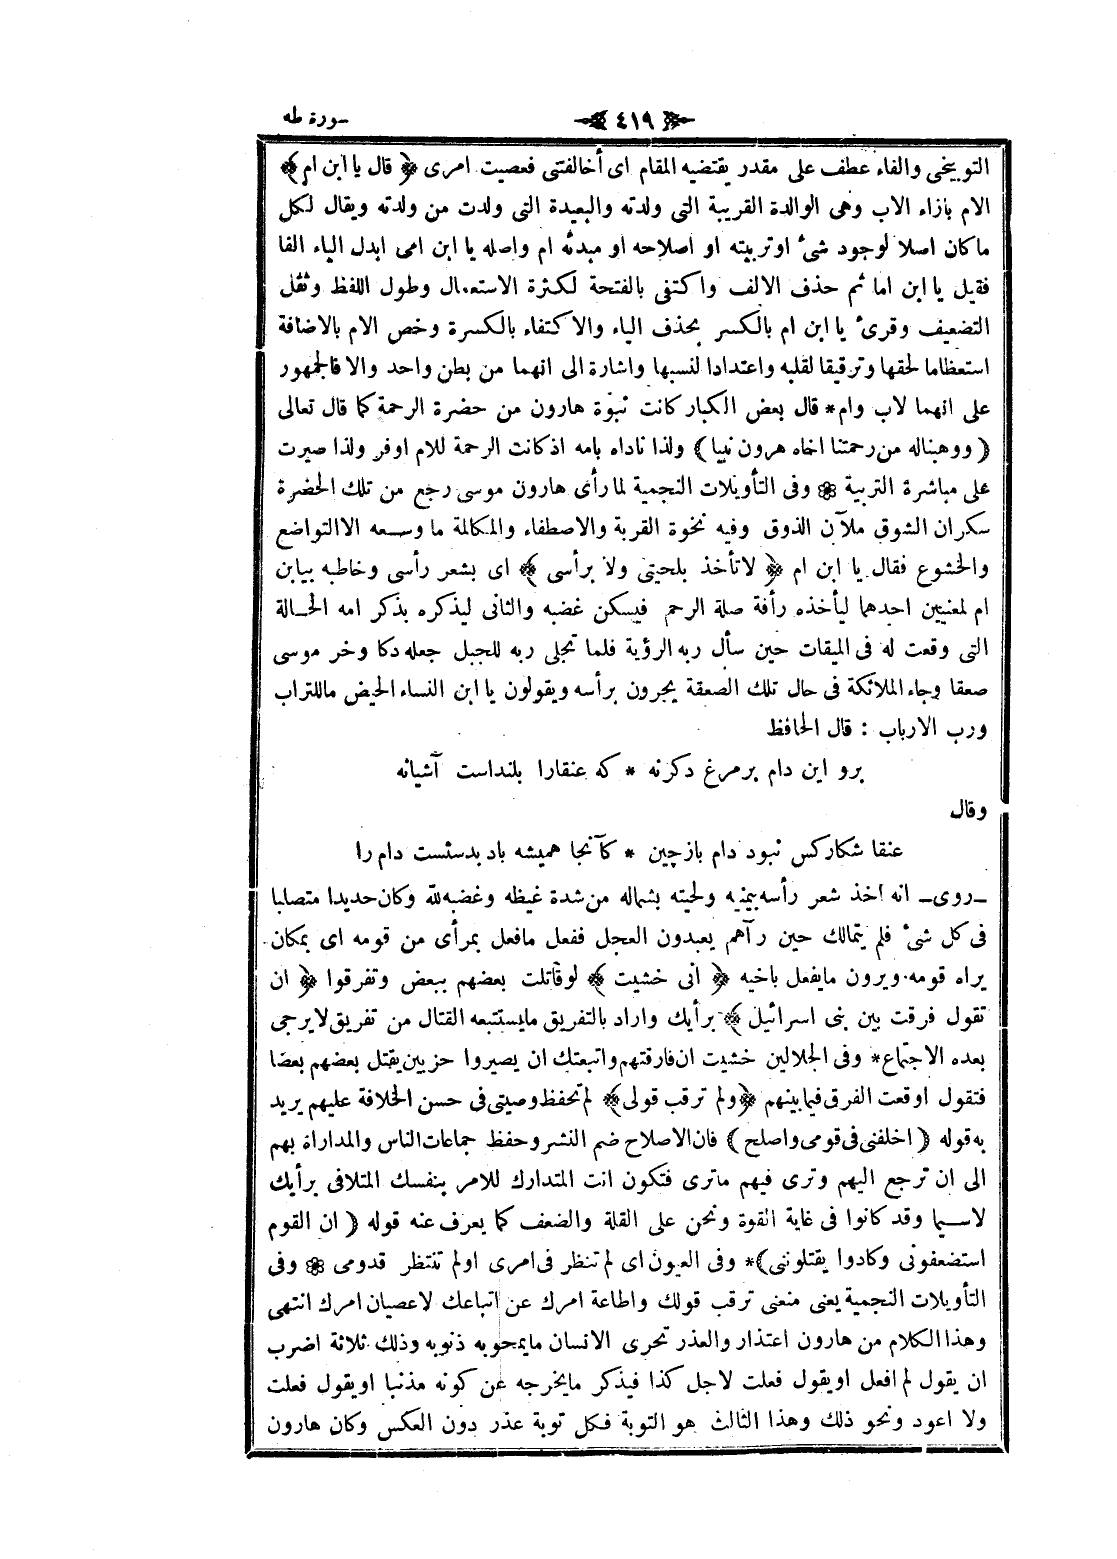 سورة طه
٤١٩
التوبيخى والفاء عطف على مقدر يقتضيه المقام اى أخالفتنى فعصيت امرى ﴿ قال يا ابن ام ﴾
الام بازاء الاب وهى الوالدة القريبة التى ولدته والبعيدة التى ولدت من ولدته ويقال لكل
ما كان اصلا لوجود شئ اوتربيته او اصلاحه او مبدئه ام واصله يا ابن امى ابدل الياء الفا
فقيل يا ابن اما ثم حذف الالف واكتفى بالفتحة لكثرة الاستعمال وطول اللفظ وثقل
التضعيف وقرئ يا ابن ام بالكسر بحذف الياء والاكتفاء بالكسرة وخص الام بالاضافة
استعظاما لحقها وترقيقا لقلبه واعتدادا لنسبها واشارة الى انهما من بطن واحد والا فالجمهور
على انهما لاب وام* قال بعض الكبار كانت نبوة هارون من حضرة الرحمة كما قال تعالى
( ووهبناله من رحمتنا اخاه هرون نبيا ) ولذا ناداه بامه اذ كانت الرحمة للام اوفر ولذا صبرت
على مباشرة التربية ❁ وفى التأويلات النجمية لما رأى هارون موسى رجع من تلك الحضرة
سكران الشوق ملآن الذوق وفيه نخوة القربة والاصطفاء والمكالمة ما وسعه الاالتواضع
والخشوع فقال يا ابن ام ﴿ لاتأخذ بلحيتى ولا برأسى ﴾ اى بشعر رأسى وخاطبه بيابن
ام لمعنيين احدهما ليأخذه رأفة صلة الرحم فيسكن غضبه والثانى ليذكره بذكر امه الحالة
التى وقعت له فى الميقات حين سأل ربه الرؤية فلما تجلى ربه للجبل جعله دكا وخر موسى
صعقا وجاء الملائكة فى حال تلك الصعقة يجرون برأسه ويقولون يا ابن النساء الحيض ماللتراب
ورب الارباب : قال الحافظ
برو اين دام برمرغ دكرنه * كه عنقارا بلنداست آشيانه
وقال
عنقا شكاركس نبود دام بازچين * كآنجا هميشه باد بدستست دام را
ـ روى ـ انه اخذ شعر رأسه بيمينه ولحيته بشماله من شدة غيظه وغضبه لله وكان حديدا متصلبا
فى كل شئ فلم يتمالك حين رآهم يعبدون العجل ففعل مافعل بمرأى من قومه اى بمكان
يراه قومه ويرون مايفعل باخيه ﴿ انى خشيت ﴾ لوقاتلت بعضهم ببعض وتفرقوا ﴿ ان
تقول فرقت بين بنى اسرائيل ﴾ برأيك واراد بالتفريق مايستتبعه القتال من تفريق لايرجى
بعده الاجتماع* وفى الجلالين خشيت ان فارقتهم واتبعتك ان يصيروا حزبين يقتل بعضهم بعضا
فتقول اوقعت الفرق فيما بينهم ﴿ ولم ترقب قولى ﴾ لم تحفظ وصيتى فى حسن الخلافة عليهم يريد
به قوله ( اخلفنى فى قومى واصلح ) فان الاصلاح ضم النشر وحفظ جماعات الناس والمداراة بهم
الى ان ترجع اليهم وترى فيهم ماترى فتكون انت المتدارك للامر بنفسك المتلافى برأيك
لاسيما وقد كانوا فى غاية القوة ونحن على القلة والضعف كما يعرف عنه قوله ( ان القوم
استضعفونى وكادوا يقتلوننى )* وفى العيون اى لم تنظر فى امرى اولم تنتظر قدومى ❁ وفى
التأويلات النجمية يعنى منعنى ترقب قولك واطاعة امرك عن اتباعك لاعصيان امرك انتهى
وهذا الكلام من هارون اعتذار والعذر تحرى الانسان مايمحوبه ذنوبه وذلك ثلاثة اضرب
ان يقول لم افعل اويقول فعلت لاجل كذا فيذكر مايخرجه عن كونه مذنبا اويقول فعلت
ولا اعود ونحو ذلك وهذا الثالث هو التوبة فكل توبة عذر دون العكس وكان هارون